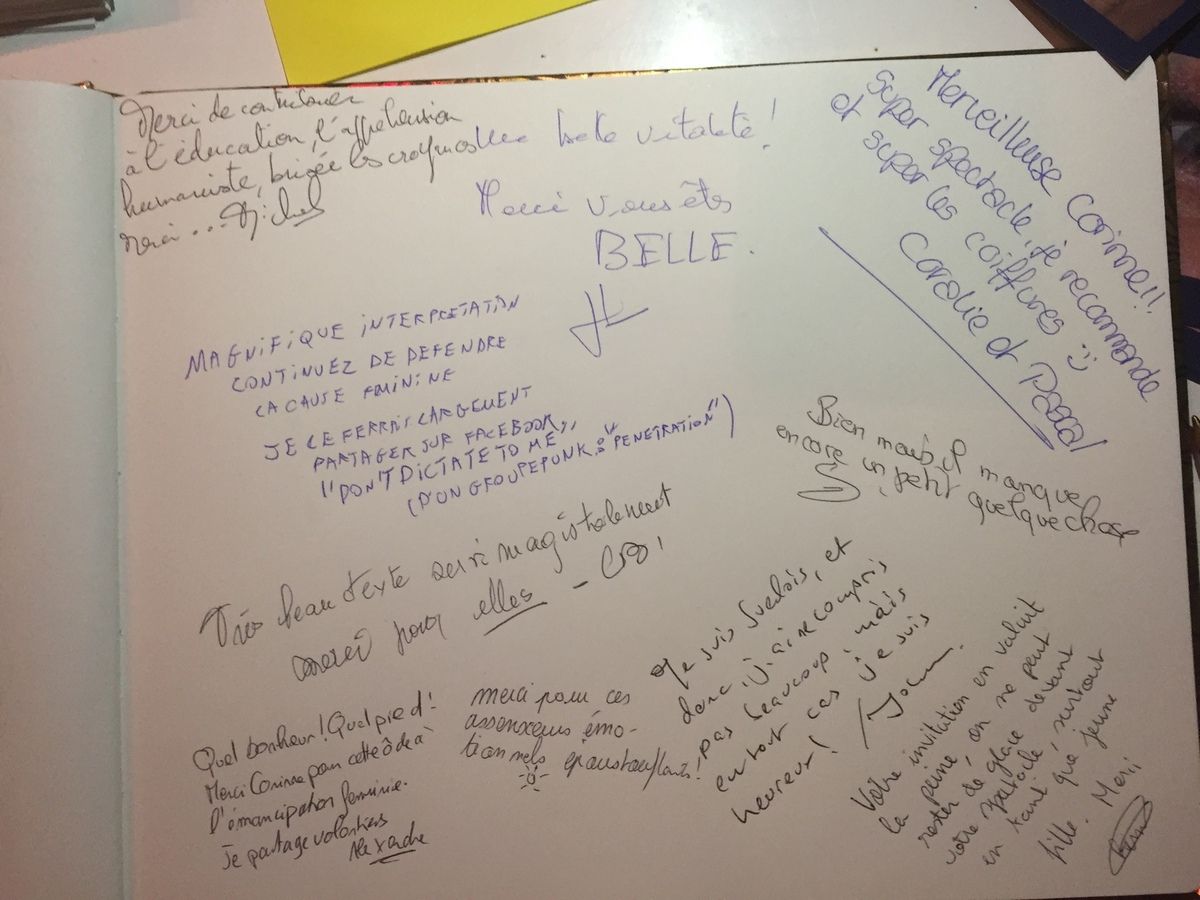 Merci de contribuer
à l'éducation, l'appréhension
humaniste, brisée les croyances
Merci... Michel
Une belle vitalité !
Merci vous êtes
BELLE.
Merveilleuse Corinne!!
super spectacle, je recommande
et super les coiffures :)
Coralie et Pascal
MAGNIFIQUE INTERPRETATION
CONTINUEZ DE DEFENDRE
LA CAUSE FMININE
JE LE FERRAIS LARGEMENT
PARTAGER SUR FACEBOOK,
"DON'T DICTATE TO ME"
(D'UN GROUPE PUNK : "PENETRATION")
Bien mais il manque
encore un petit quelque chose
Très beau texte servi magistralement
merci pour elles -
Je suis Suedois, et
donc j'ai ne compris
pas beaucoup, mais
en tout cas je suis
heureux!
Quel bonheur ! Quel pied !
Merci Corinne pour cette ôde à
l'émancipation féminine.
Je partage volontiers
Alexandre
merci pour ces
ascenseurs émo-
tionnels époustouflants!
Votre invitation en valait
la peine, on ne peut
rester de glace devant
votre spectacle, surtout
en tant que jeune
fille. Merci